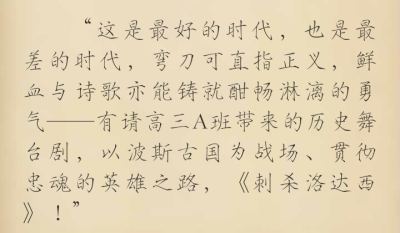 “这是最好的时代，也是最
差的时代，弯刀可直指正义，鲜
血与诗歌亦能铸就酣畅淋漓的勇
气——有请高三A班带来的历史舞
台剧，以波斯古国为战场、贯彻
忠魂的英雄之路，《刺杀洛达西
》！”